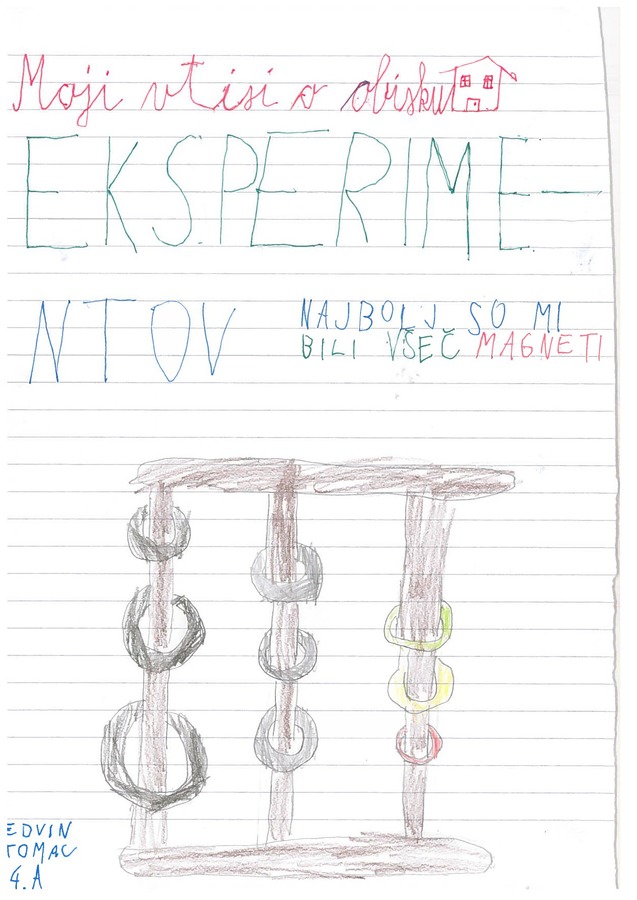 Moji vtisi o obisku
EKSPERIME-
NTOV
NAJBOLJ SO MI
BILI VŠEČ MAGNETI
EDVIN
TOMAC
4. A